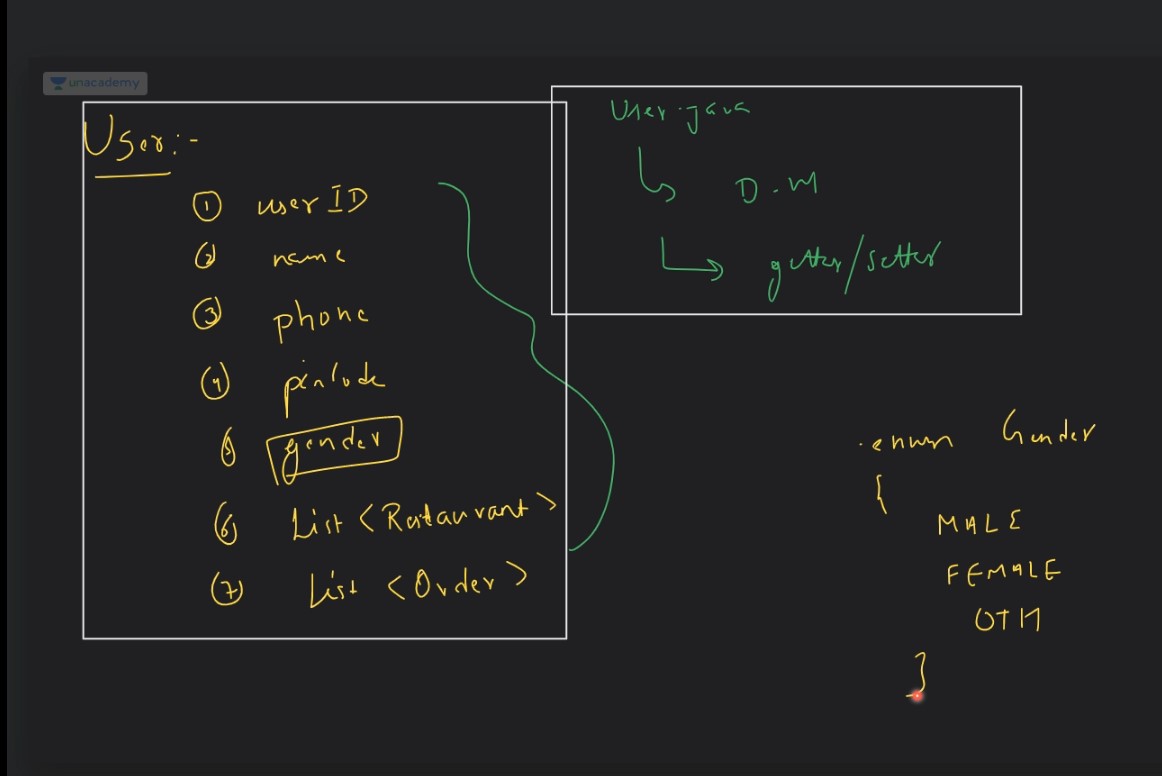 unacademy
User:-
① userID
② name
③ phone
④ pincode
⑤ gender
⑥ List <Restaurant>
⑦ List <Order>
User.java
D.M
getter/setter
enum Gender
{
MALE
FEMALE
OTH
}